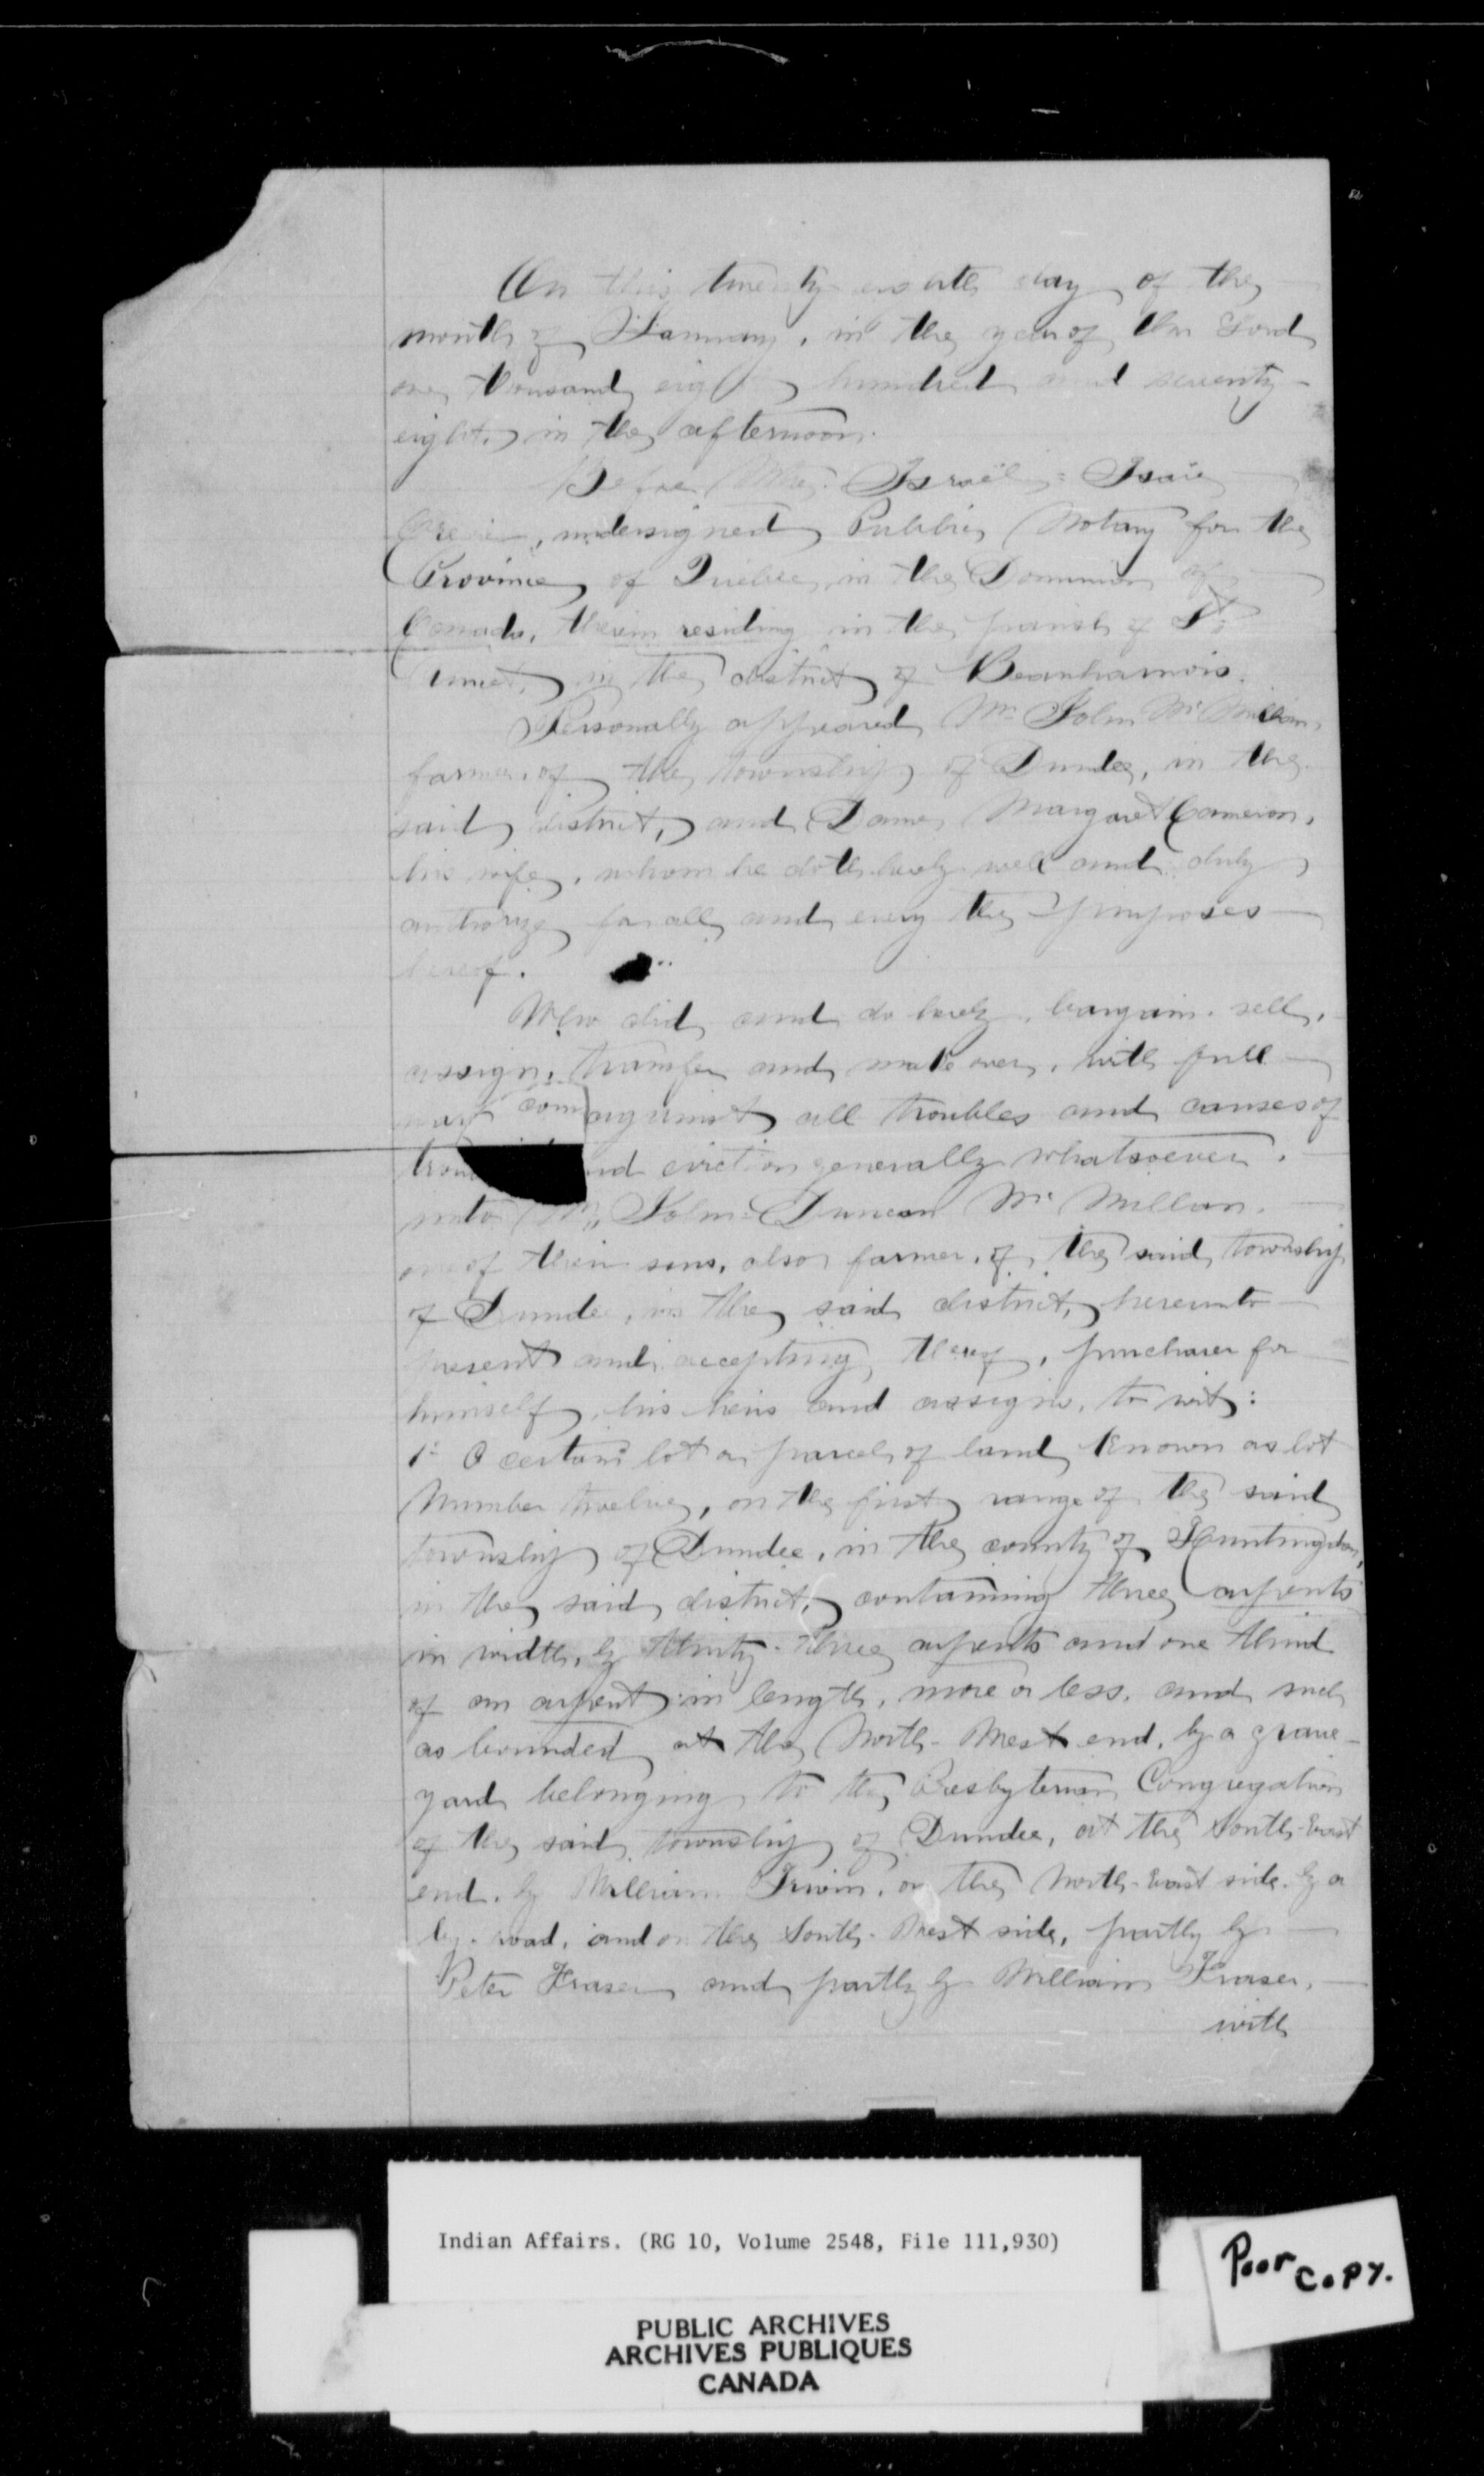 On this twenty eighth day of the
month of January, in the year of Our Lord
one thousand eight hundred and seventy-
eight, in the afternoon.
Before Me Israël-Isaïe
undersigned Public Notary for the
Province of Quebec, in the Dominion of
Canada, therein residing in the parish of St
Anicet, in the district of Beauharnois.
Personally appeared Mr John Mc Millan,
farmer of the township of Dundee, in the
said district, and Dame Margaret Cameron,
his wife, whom he doth hereby well and duly
authorize for all and every the purposes
hereof.
Who did and do hereby bargain, sell,
assign, transfer and make over, with full
against all troubles and causes of
eviction generally whatsoever.
unto Mr John-Duncan Mc Millan.
one of their sons, also farmer, of the said township
of Dundee, in the said district, hereunto
present and accepting thereof, purchaser for
himself, his heirs and assigns, to wit:
1° A certain lot or parcel of land known as lot
Number twelve, on the first range of the said
township of Dundee, in the county of Huntingdon,
in the said district, containing three arpents
in width, by thirty-three arpents and one third
of an arpent in length, more or less, and such
as bounded at the North-West end, by a grave-
yard belonging to the Presbyterian Congregation
of the said township of Dundee, at the South-East
end, by William Irwin, on the North-East side, by a
by-road, and on the South-West side, partly by
Peter Fraser and partly by William Fraser,
with
Indian Affairs. (RG 10, Volume 2548, File 111,930)
Poor Copy.
PUBLIC ARCHIVES
ARCHIVES PUBLIQUES
CANADA